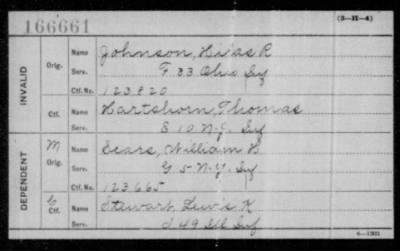 166661
(3-H-4)
INVALID
Orig.
Name Johnson, Hiias R
Serv. F 33 Ohio Inf
Ctf. No. 123820
Ctf.
Name Hartshorn, Thomas
Serv. E 10 N.J. Inf
DEPENDENT
M
Orig.
Name Sears, William H
Serv. G 5 N.Y. Inf
Ctf. No. 123665
C
Ctf.
Name Stewart, Lewis K
Serv. I 49 Ill Inf